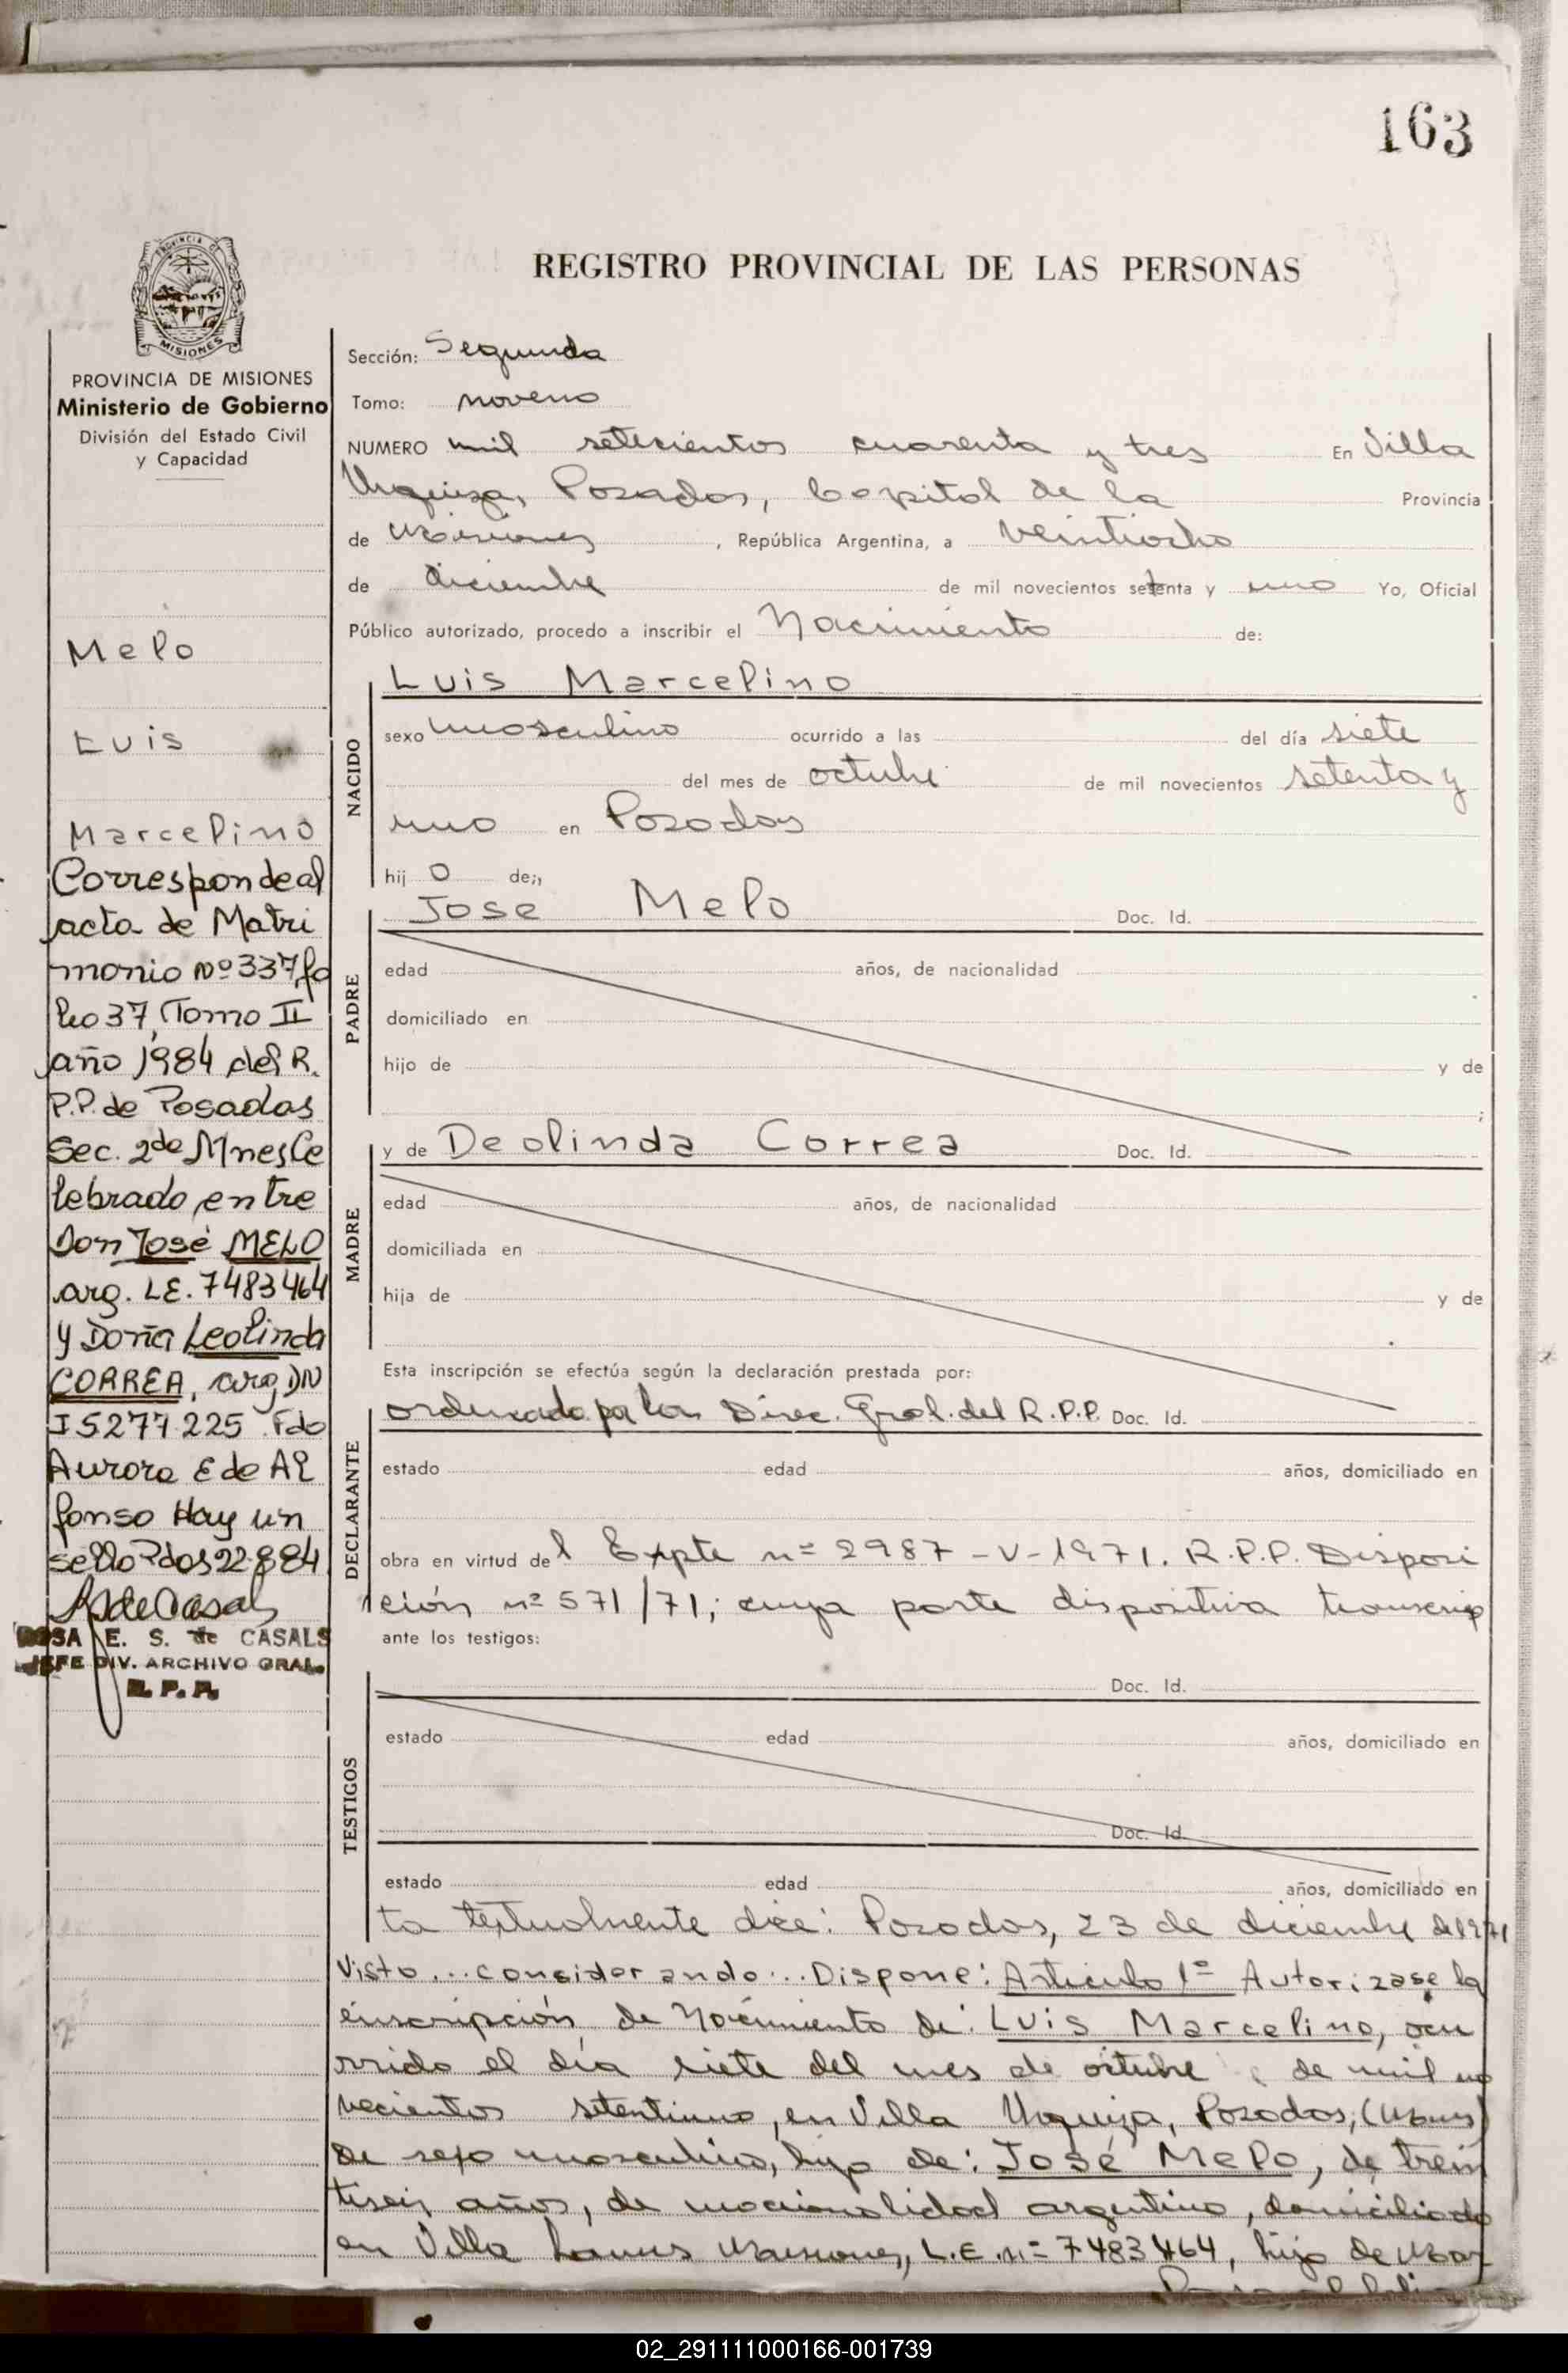 163
PROVINCIA DE
MISIONES
REGISTRO PROVINCIAL DE LAS PERSONAS
PROVINCIA DE MISIONES
Ministerio de Gobierno
División del Estado Civil
y Capacidad
Melo
Luis
Marcelino
Corresponde al
acta de Matri
monio Nº 337, fo
lio 37, Tomo II
año 1984 del R.
P.P. de Posadas
Sec. 2da Mnes Ce
lebrado entre
Don José MELO
arg. LE. 7483464
y Doña Leolinda
CORREA, arg, DN
I 5277.225 Fdo
Aurora E de Al
fonso Hay un
sello Pdos 22-8-84
ROSA E. S. de CASALS
JEFE DIV. ARCHIVO GRAL.
R. P. P.
Sección: Segunda
Tomo: noveno
NUMERO mil setecientos cuarenta y tres En Villa
Urquiza, Posadas, Capital de la Provincia
de Misiones, República Argentina, a veintiocho
de diciembre de mil novecientos setenta y uno Yo, Oficial
Público autorizado, procedo a inscribir el Nacimiento de:
NACIDO
Luis Marcelino
sexo masculino ocurrido a las del día siete
del mes de octubre de mil novecientos setenta y
uno en Posadas
hij o de:,
PADRE
Jose Melo Doc. Id.
edad años, de nacionalidad
domiciliado en
hijo de y de
;
MADRE
y de Deolinda Correa Doc. Id.
edad años, de nacionalidad
domiciliada en
hija de y de
Esta inscripción se efectúa según la declaración prestada por:
DECLARANTE
ordenado por la Direc. Gral. del R.P.P. Doc. Id.
estado edad años, domiciliado en
obra en virtud del Expte nº 2987-V-1971. R.P.P. Disposi
ción nº 571/71; cuya parte dispositiva transcrip
ante los testigos:
TESTIGOS
Doc. Id.
estado edad años, domiciliado en
Doc. Id.
estado edad años, domiciliado en
ta textualmente dice: Posadas, 23 de diciembre de 1971
Visto... considerando... Dispone: Artículo 1º Autorizase la
inscripción de Nacimiento de: Luis Marcelino, ocu
rrido el día siete del mes de octubre de mil no
vecientos setentiuno, en Villa Urquiza, Posadas, (Mnes)
de sexo masculino, hijo de: José Melo, de trein
tiseis años, de nacionalidad argentino, domiciliado
en Villa Lanus Misiones, L.E. nº 7483464, hijo de Mar
02_291111000166-001739